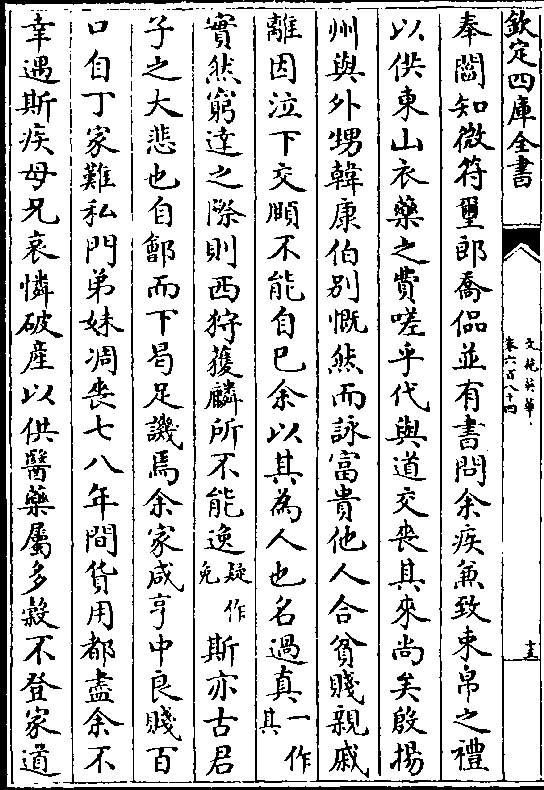 欽定四庫全書
文苑英華
卷六百八十四
十五
奉閻知微符璽郎喬侃並有書問余疾兼致束帛之禮
以供東山衣藥之費嗟乎代與道交喪其來尚矣殷揚
州與外甥韓康伯别慨然而詠富貴他人合貧賤親戚
離因泣下交頤不能自已余以其為人也名過真一作其
實然窮達之際則西狩獲麟所不能逸疑作免斯亦古君
子之大悲也自鄶而下曷足譏焉余家咸亨中良賤百
口自丁家難私門弟妹凋喪七八年間貨用都盡余不
幸遇斯疾母兄哀憐破産以供醫藥屬多榖不登家道